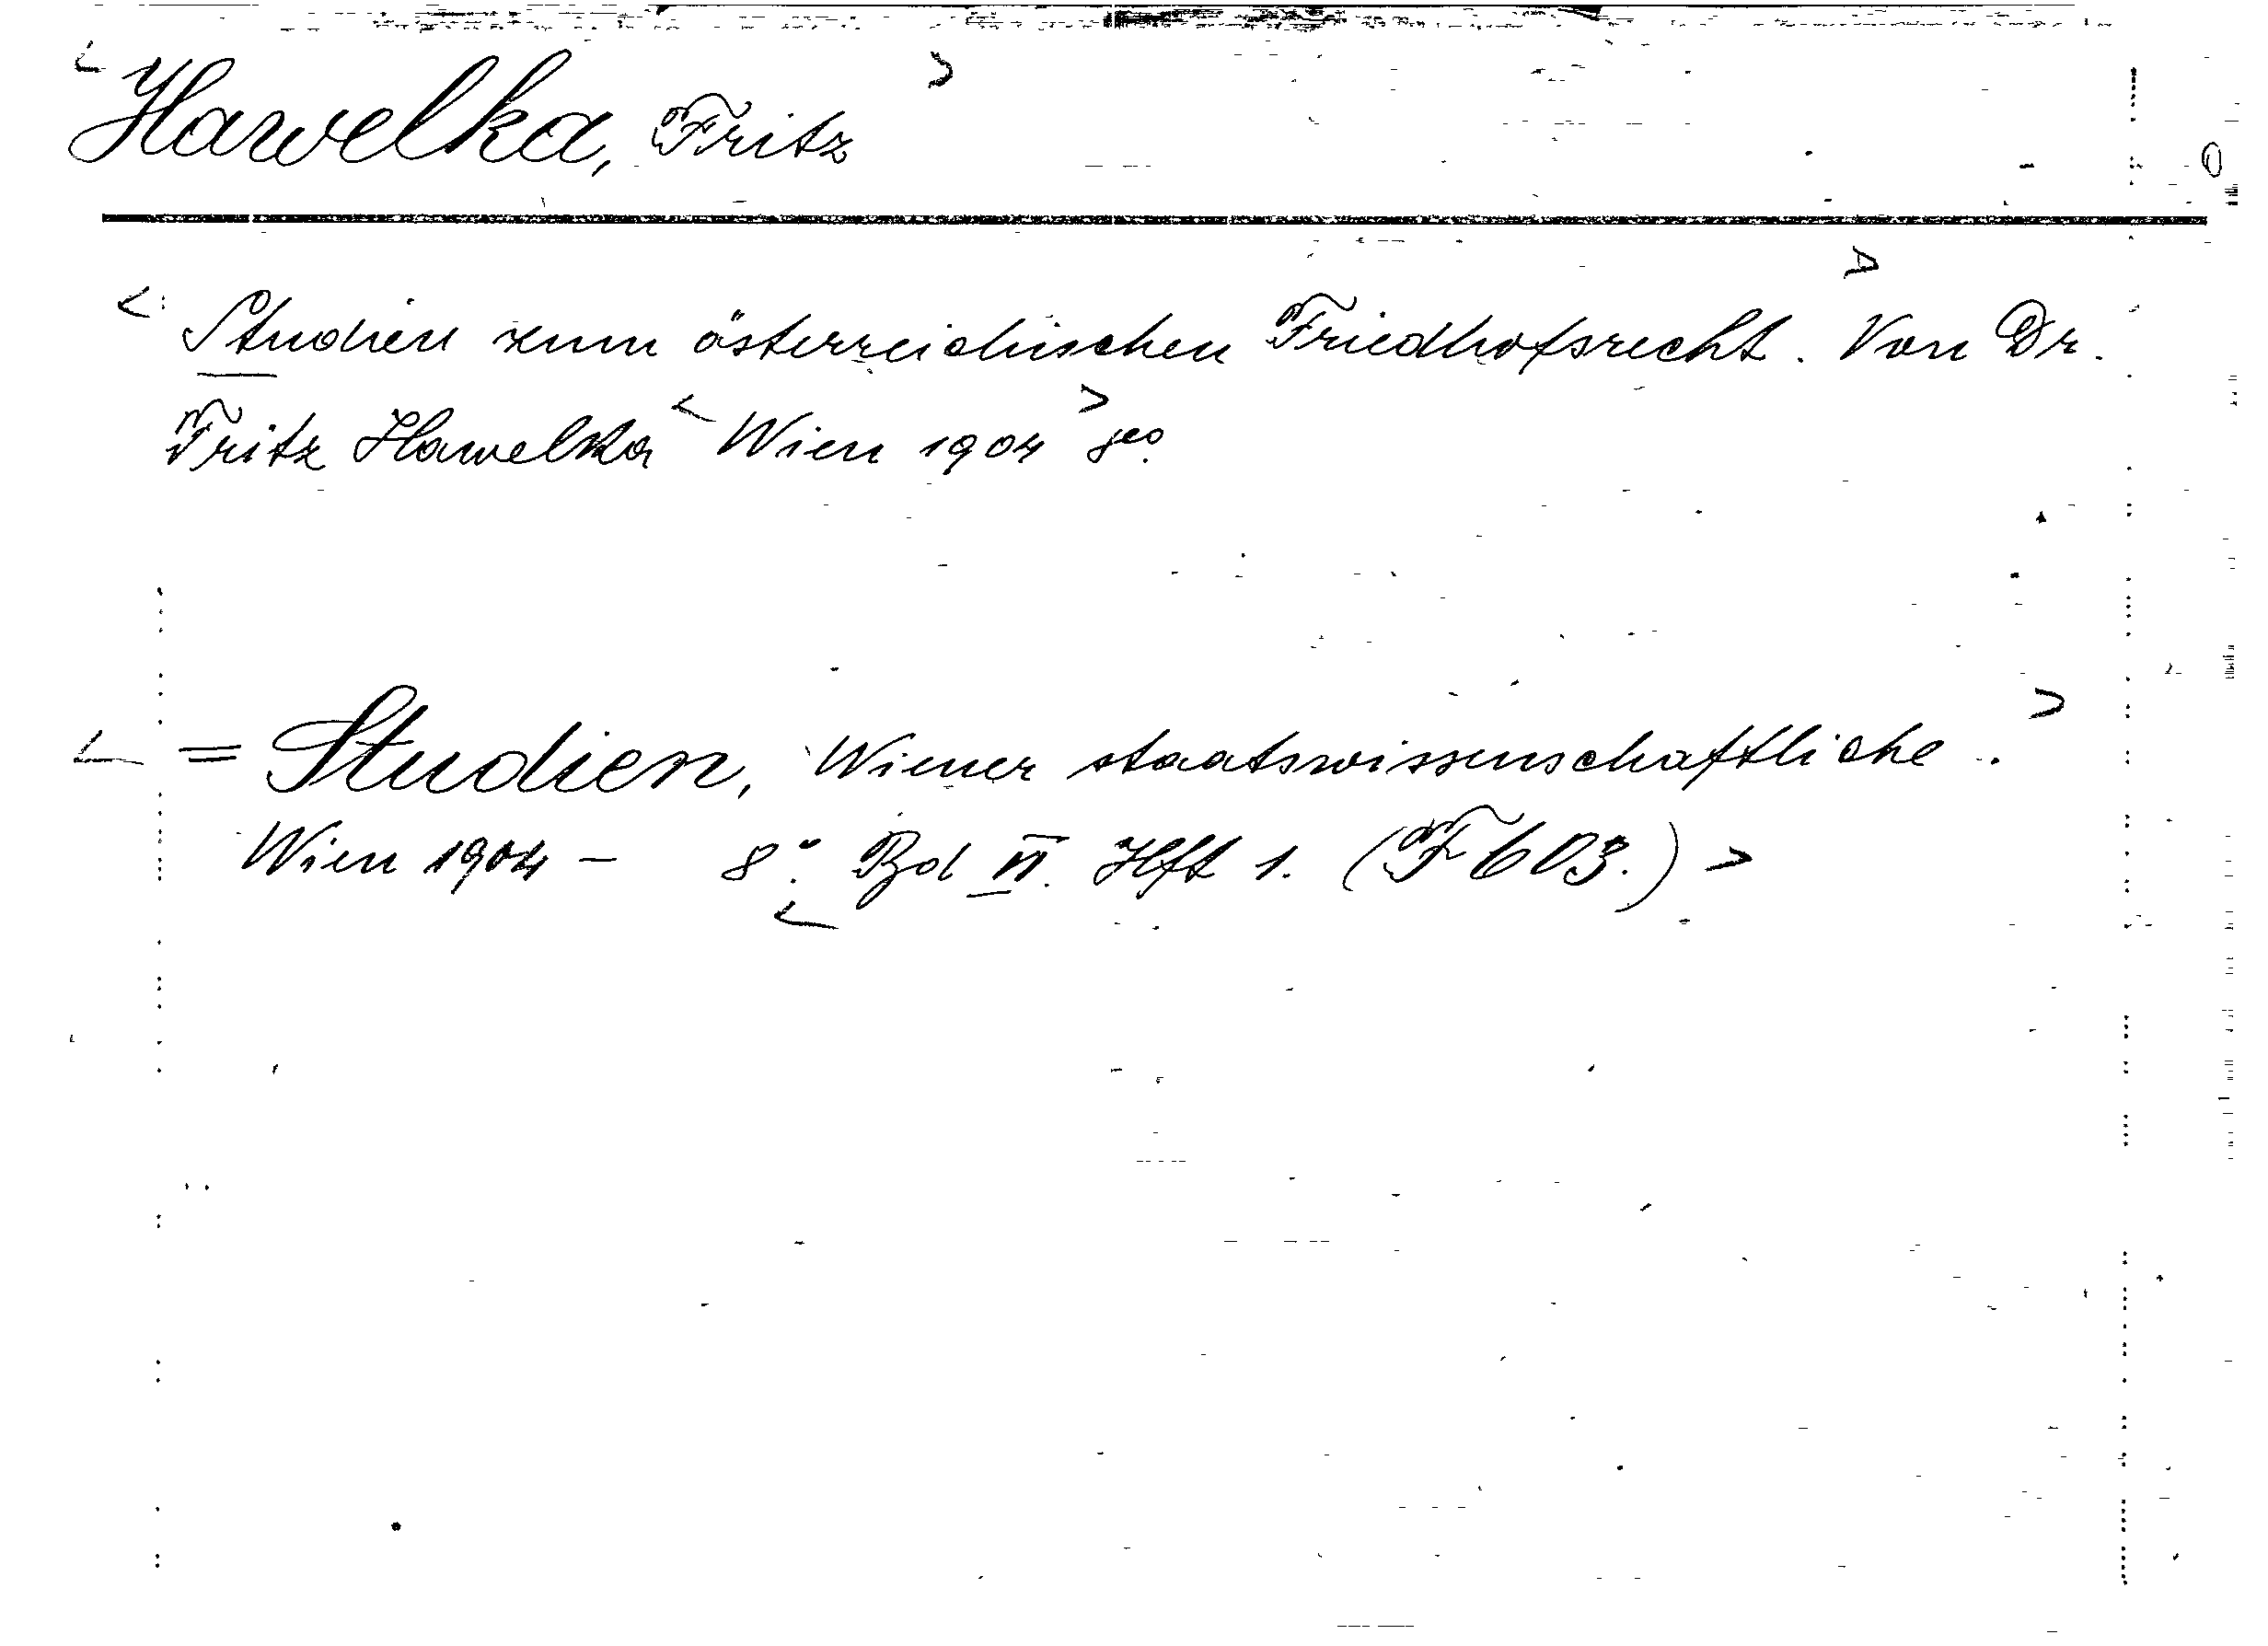 <Hawelka, Fritz>
<Studien zum österreichischen Friedhofsrecht.> Von Dr.
Fritz Hawelka <Wien 1904> 8°.
<= Studien, Wiener staatswissenschaftliche.>
Wien 1904 – 8°. <Bd VI. Hft 1. (F 603.)>